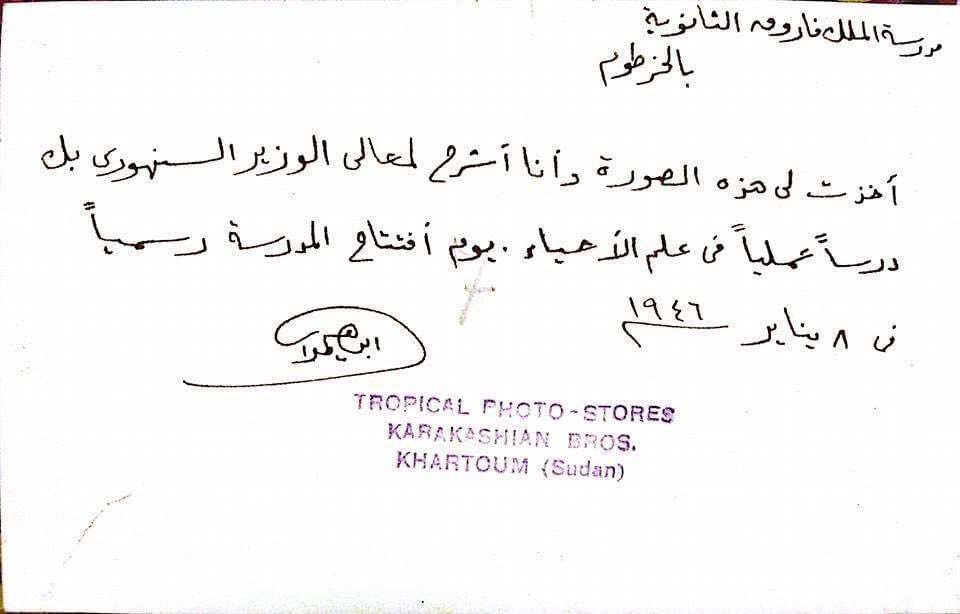 مدرسة الملك فاروق الثانوية
بالخرطوم
أخذت لى هذه الصورة وأنا أشرح لمعالى الوزير السنهورى بك
درساً عملياً فى علم الأحياء . يوم أفتتاح المدرسة رسمياً
فى ٨ يناير ١٩٤٦
ابراهيم
TROPICAL PHOTO-STORES
KARAKASHIAN BROS.
KHARTOUM (Sudan)